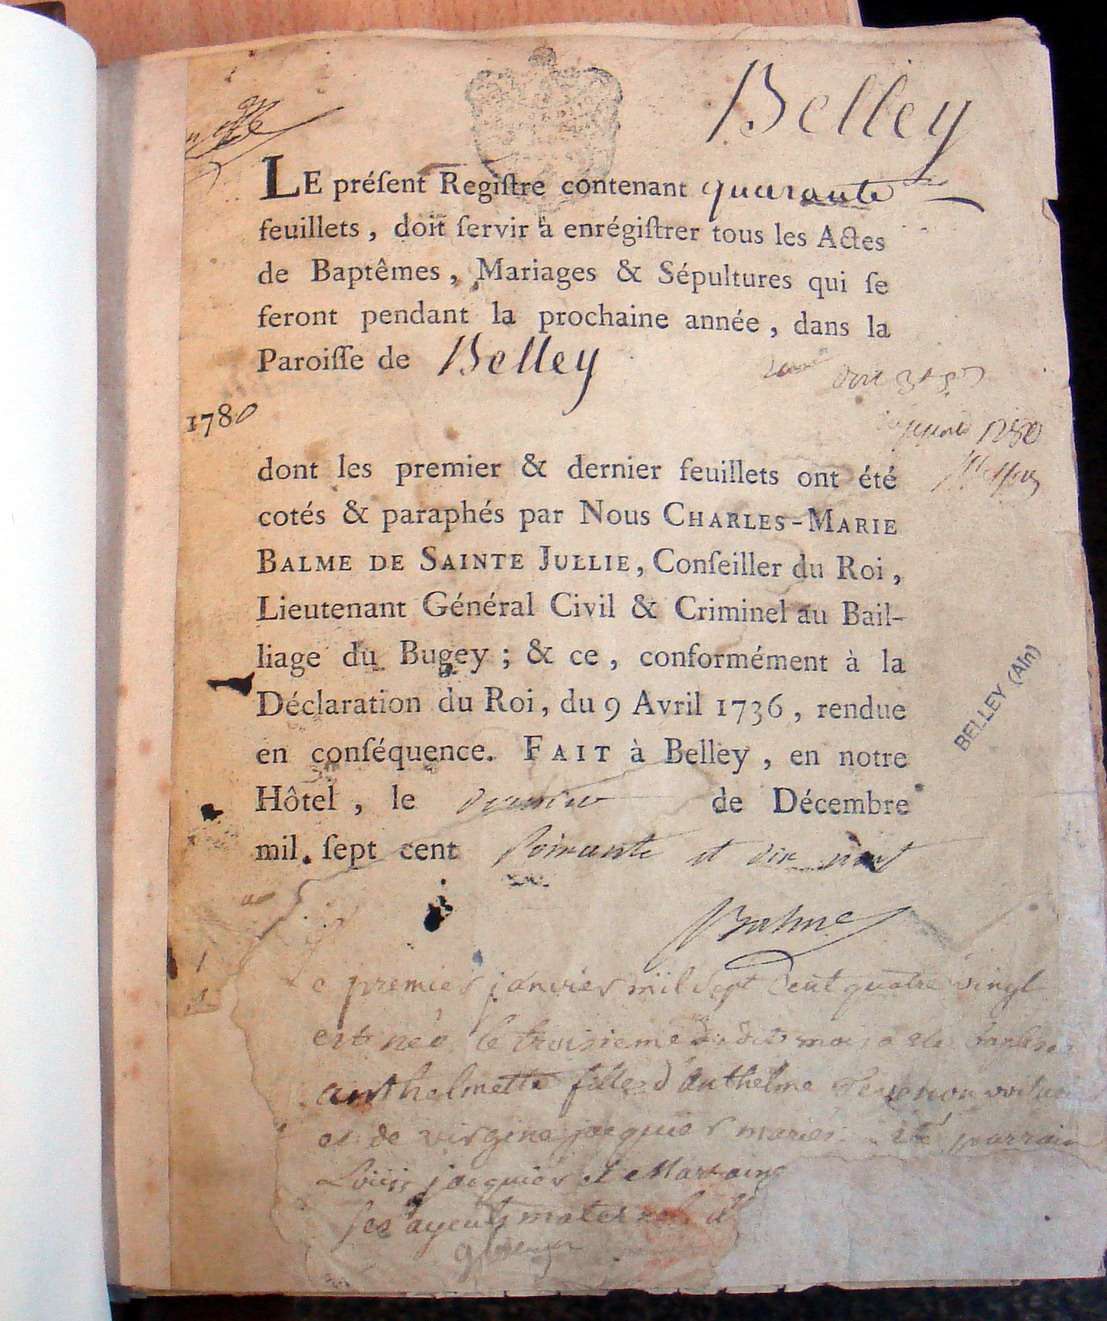 Belley
LE préſent Regiſtre contenant quarante
feuillets, doit ſervir à enrégiſtrer tous les Actes
de Baptêmes, Mariages & Sépultures qui ſe
feront pendant la prochaine année, dans la
Paroiſſe de Belley
1780
dont les premier & dernier feuillets ont été
cotés & paraphés par Nous CHARLES-MARIE
BALME DE SAINTE JULLIE, Conſeiller du Roi,
Lieutenant Général Civil & Criminel au Bail-
liage du Bugey; & ce, conformément à la
Déclaration du Roi, du 9 Avril 1736, rendue
en conſéquence. FAIT à Belley, en notre
Hôtel, le de Décembre
mil ſept cent soixante et dix neuf
Balme
BELLEY (Ain)
premier janvier mil sept cent quatre vingt
est née le troisieme du dit mois
anthelmette fille d'anthelme
et de virgine jacquier mariés parrain
Louis jacquier et
ses ayeuls maternels